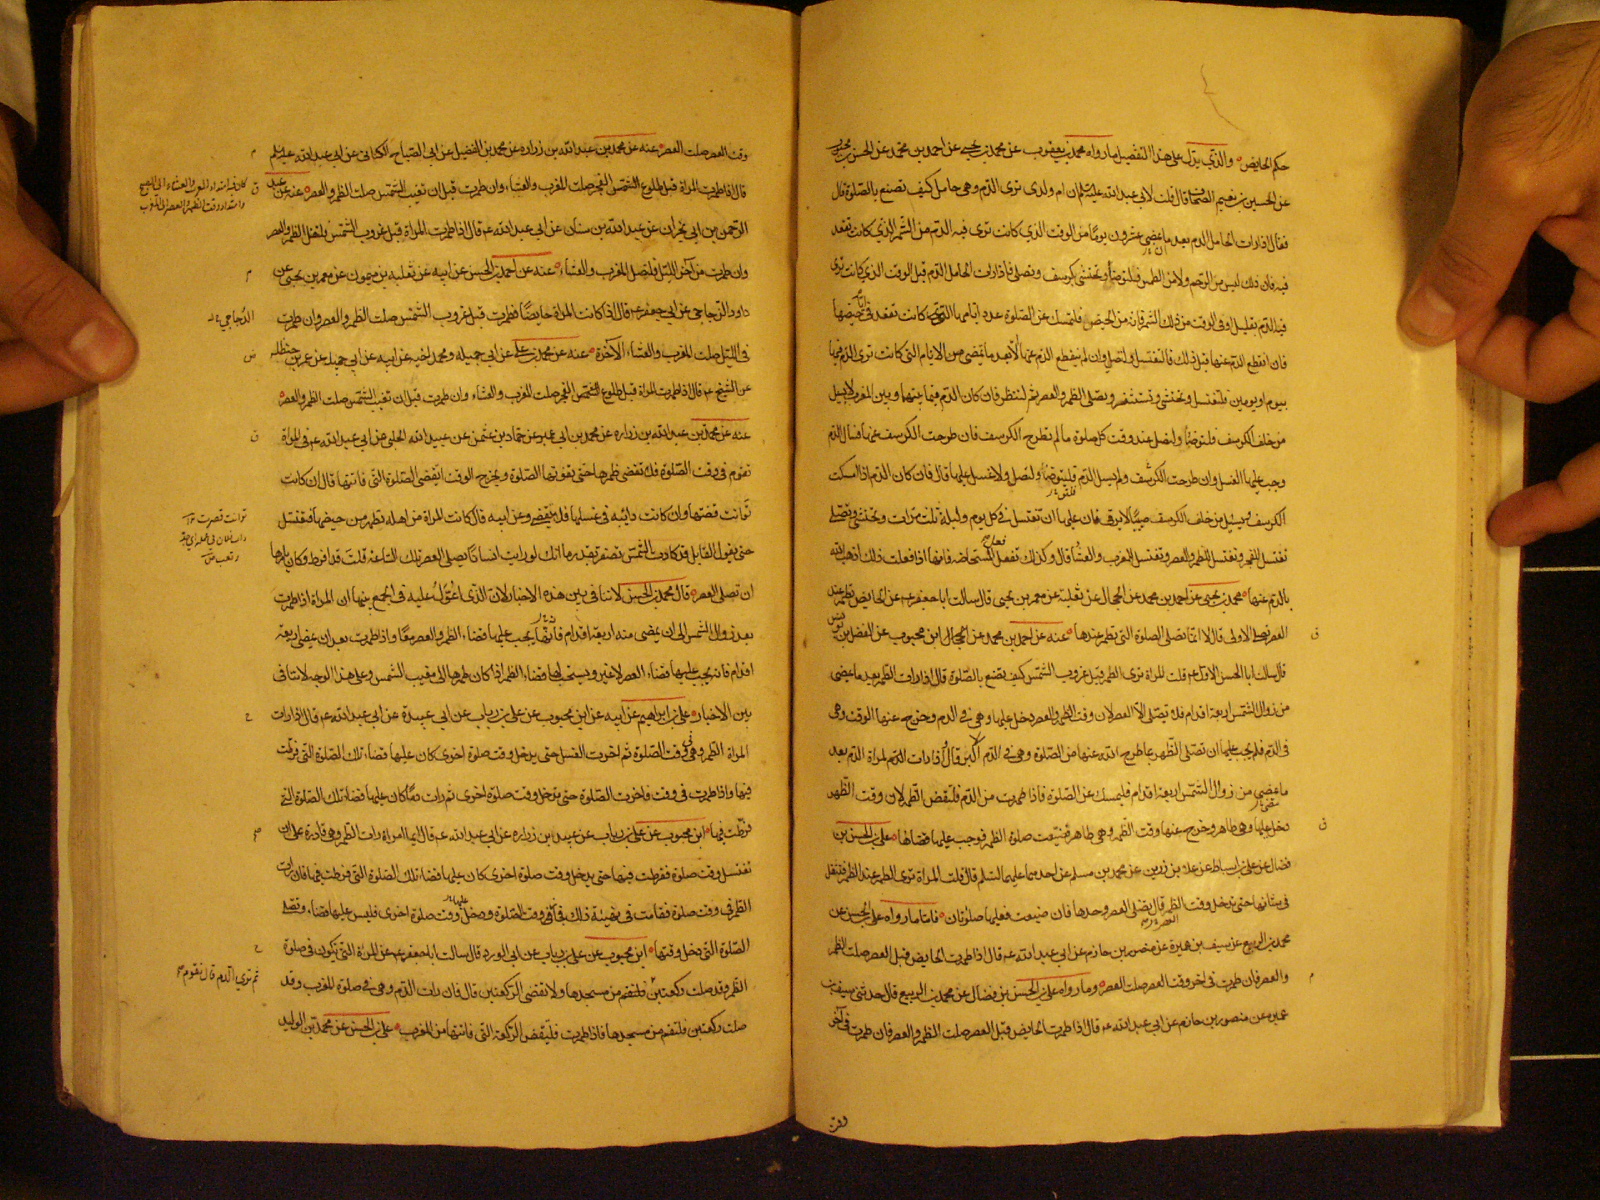 حكم الحايض والذي يدل على هذا التفصيل ما رواه محمد بن يعقوب عن محمد بن يحيى عن احمد بن محمد عن الحسن بن محبوب
عن الحسين بن نعيم الصحاف قال قلت لابي عبد الله عليه السلم ان ام ولدى ترى الدم وهي حامل كيف تصنع بالصلوة قال
فقال اذا رات الحامل الدم بعد ما يمضي عشرون يوما من الوقت الذي كانت ترى فيه الدم من الشهر الذي كانت تقعد
فيه فان ذلك ليس من الرحم ولا من الطمث فلتتوضأ وتحتشى بكرسف وتصلى فاذا رات الحامل الدم قبل الوقت الذي كانت ترى
فيه الدم بقليل او في الوقت من ذلك الشهر فانه من الحيض فلتمسك عن الصلوة عدد ايامها التي كانت تقعد في حيضها
فان انقطع الدم عنها قبل ذلك فلتغتسل ولتصل وان لم ينقطع الدم عنها الا بعد ما تمضى من الايام التي كانت ترى الدم فيها
بيوم او يومين فلتغتسل وتحتشى وتستثفر وتصلى الظهر والعصر ثم لتنظر فان كان الدم فيما بينها وبين المغرب لا يسيل
من خلف الكرسف فلتتوضأ ولتصل عند وقت كل صلوة ما لم تطرح الكرسف فان طرحت الكرسف عنها فسال الدم
وجب عليها الغسل وان طرحت الكرسف ولم يسل الدم فلتتوضأ ولتصل ولا غسل عليها قال فان كان الدم اذا امسكت
الكرسف يسيل من خلف الكرسف صبيبا لا يرقى فان عليها ان تغتسل في كل يوم وليلة ثلث مرات وتحتشى وتصلى
تغتسل للفجر وتغتسل للظهر والعصر وتغتسل للمغرب والعشا قال وكذلك تفعل المستحاضه فانها اذا فعلت ذلك اذهب الله
بالدم عنها محمد بن يحيى عن احمد بن محمد عن الحجال عن ثعلبة عن معمر بن يحيى قال سالت ابا جعفر عن الحايض تطهر عند
العصر تصلى الاولى قال لا انما تصلى الصلوة التي تطهر عندها عنه عن احمد بن محمد عن ابن محبوب عن الفضل بن يونس
قال سالت ابا الحسن الاول قلت المراة ترى الطهر قبل غروب الشمس كيف تصنع بالصلوة قال اذا رات الطهر بعد ما يمضى
من زوال الشمس اربعة اقدام فلا تصلى الا العصر لان وقت الظهر والعصر دخل عليها وهي في الدم وخرج عنها الوقت وهى
في الدم فلم يجب عليها ان تصلى الظهر وما طرح الله عنها من الصلوة وهي في الدم اكثر قال اذا رات المراة الدم بعد
ما يمضى من زوال الشمس اربعة اقدام فلتمسك عن الصلوة فاذا طهرت من الدم فلتقض الظهر لان وقت الظهر
دخل عليها وهى طاهر وخرج عنها وقت الظهر وهى طاهر فضيعت صلوة الظهر فوجب عليها قضاؤها على بن الحسن بن
فضال عن على بن اسباط عن علا بن رزين عن محمد بن مسلم عن احدهما عليهما السلم قال قلت المراة ترى الطهر عند الظهر فتشتغل
في شانها حتى يدخل وقت العصر قال تصلى العصر وحدها فان ضيعت فعليها صلوتان فاما ما رواه على بن الحسن عن
محمد بن الربيع عن سيف بن عميرة عن منصور بن حازم عن ابي عبد الله قال اذا طهرت الحايض قبل العصر صلت الظهر
والعصر فان طهرت في اخر وقت العصر صلت العصر وما رواه على بن الحسن بن فضال عن محمد بن الربيع قال حدثنى سيف بن
عميره عن منصور بن حازم عن ابي عبد الله قال اذا طهرت الحايض قبل العصر صلت الظهر والعصر فان طهرت في آخر
وقت
وقت العصر صلت العصر عنه عن محمد بن عبد الله بن زراره عن محمد بن الفضيل عن ابى الصباح الكنانى عن ابى عبد الله عليه السلم
قال اذا طهرت المراة قبل طلوع الشمس الفجر صلت المغرب والعشاء وان طهرت قبل ان تغيب الشمس صلت الظهر والعصر عنه عن عبد
الرحمن بن ابى نجران عن عبد الله بن سنان عن ابى عبد الله قال اذا طهرت المراة قبل غروب الشمس فلتصل الظهر والعصر
وان طهرت من آخر الليل فلتصل المغرب والعشاء عنه عن احمد بن الحسن عن ابيه عن ثعلبه بن ميمون عن معمر بن يحيى عن
داود الزجاجى عن ابى جعفر قال اذا كانت المراة حايضا فطهرت قبل غروب الشمس صلت الظهر والعصر وان طهرت
الدجاجي
فى الليل صلت المغرب والعشاء الآخرة عنه عن محمد بن على عن ابى جميله ومحمد اخيه عن ابيه عن ابى جميله عن عمر بن حنظله
عن الشيخ قال اذا طهرت المراة قبل طلوع الفجر صلت المغرب والعشاء وان طهرت قبل ان تغيب الشمس صلت الظهر والعصر
عنه عن محمد بن عبد الله بن زراره عن محمد بن ابى عمير عن حماد بن عثمن عن عبيد الله الحلبى عن ابى عبد الله في المراة
تقوم في وقت الصلوة فلا تقضى طهرها حتى تفوتها الصلوة ويخرج الوقت اتقضى الصلوة التى فاتتها قال ان كانت
توانت قضتها وان كانت دائبه في غسلها فلا تقضى وعن ابيه قال كانت المراة من اهله تطهر من حيضها فتغتسل
حتى يقول القايل قد كادت الشمس تصفر بقدر ما انك لو رايت انسانا يصلى العصر تلك الساعة قلت قد افرط فكان يامرها
ان تصلى العصر قال محمد بن الحسن لا تنافى بين هذه الاخبار لان الذى اعول عليه في الجمع بينها ان المراة اذا طهرت
بعد زوال الشمس الى ان يمضى منه اربعة اقدام فانه يجب عليها قضاء الظهر والعصر معا واذا طهرت بعد ان يمضى اربعة
اقدام فانه يجب عليها قضاء العصر لا غير ويستحب لها قضاء الظهر اذا كان طهرها الى مغيب الشمس وعلى هذا الوجه لا تنافى
بين الاخبار على بن ابراهيم عن ابيه عن ابن محبوب عن على بن رياب عن ابى عبيدة عن ابى عبد الله قال اذا رات
المراة الطهر وهى في وقت الصلوة ثم اخرت الغسل حتى يدخل وقت صلوة اخرى كان عليها قضاء تلك الصلوة التى فرطت
فيها واذا طهرت في وقت فاخرت الصلوة حتى يدخل وقت صلوة اخرى ثم رات دما كان عليها قضاء تلك الصلوة التى
فرطت فيها ابن محبوب عن على بن رياب عن عبيد بن زراره عن ابى عبد الله قال ايما امراة رات الطهر وهى قادرة على ان
تغتسل وقت صلوة ففرطت فيها حتى يدخل وقت صلوة اخرى كان عليها قضاء تلك الصلوة التى فرطت فيها فان رات
الطهر في وقت صلوة فقامت في تهيئة ذلك فجاز وقت الصلوة ودخل وقت صلوة اخرى فليس عليها قضاء وتصلى
الصلوة التى دخل وقتها ابن محبوب عن على بن رياب عن ابى الورد قال سالت ابا جعفر عن المراة التى تكون فى صلوة
الظهر وقد صلت ركعتين ثم ترى الدم قال تقوم من مسجدها ولا تقضى الركعتين قال فان رات الدم وهى في صلوة المغرب وقد
صلت ركعتين فلتقم من مسجدها فاذا طهرت فلتقض الركعة التى فاتتها من المغرب على بن الحسن عن محمد بن الوليد